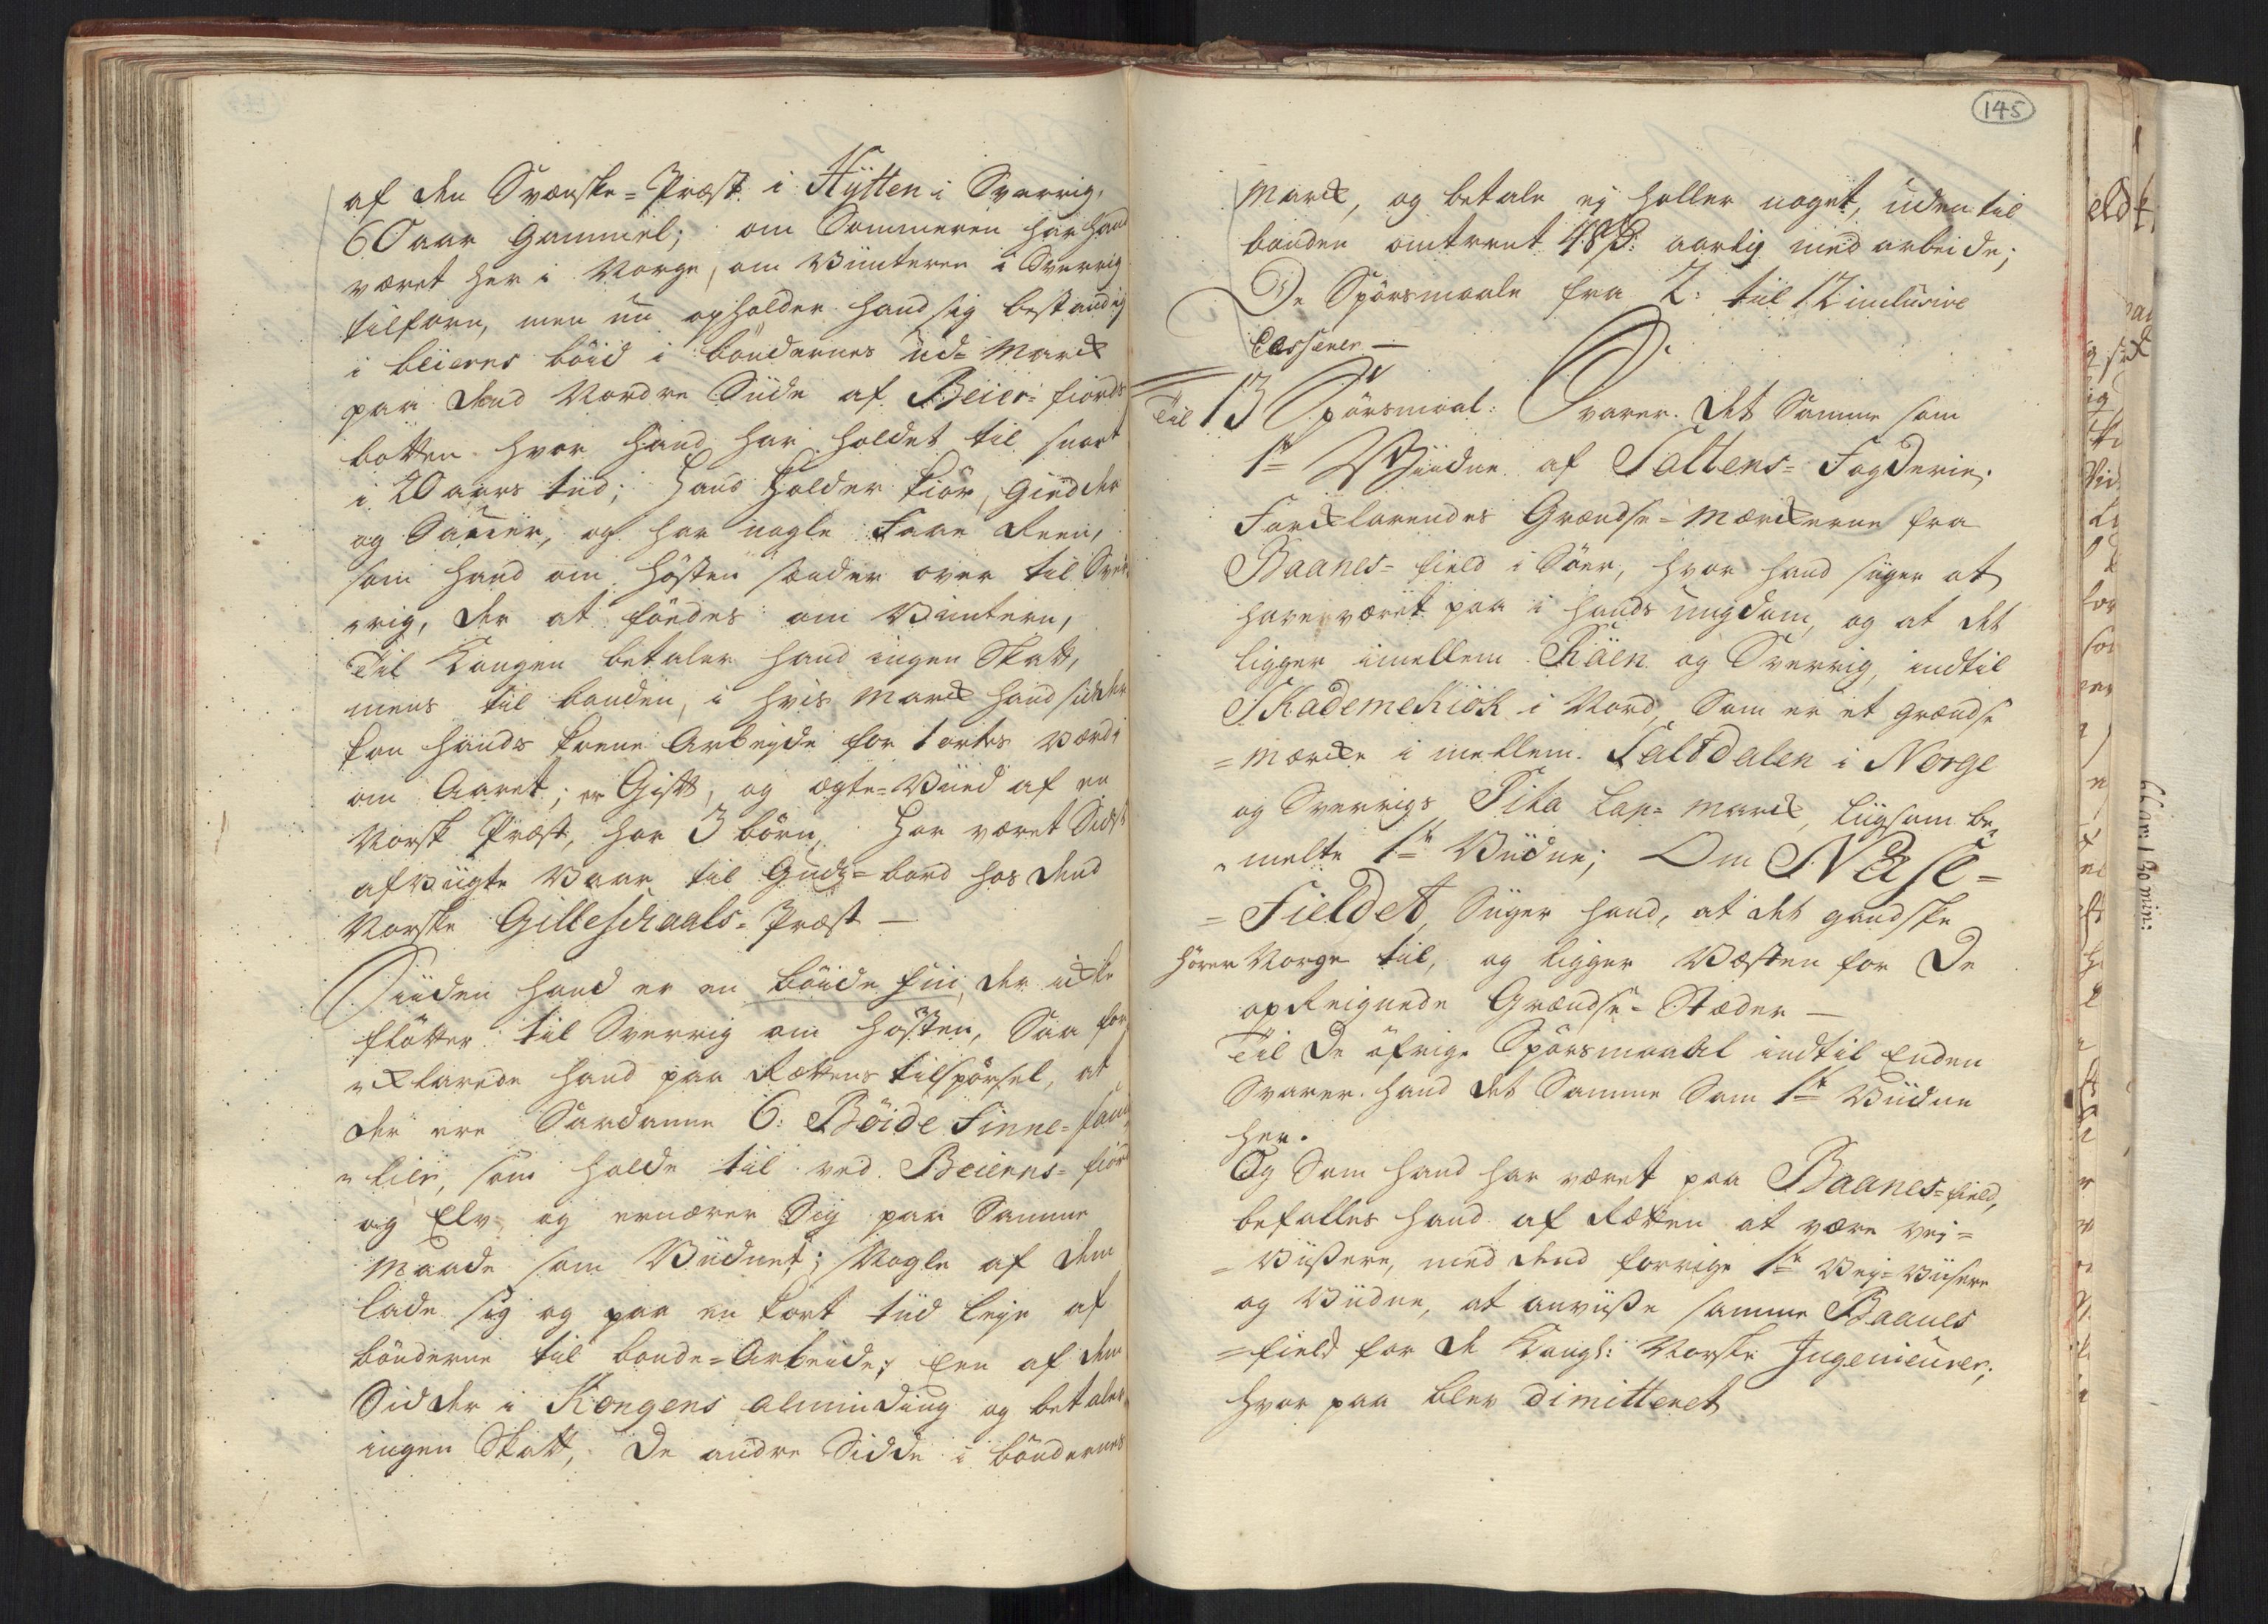 af den Svenske-Præst i Hÿtten i Sverrig,
60 aar Gammel; om Sommeren har hand
været her i Norge, om Viinteren i Sverrig
tilforn, men nu opholder hand sig bestandig
i beierns böid i böndernes ud-Marck
paa dend Nordre Siide af Beier-fiords
botten hvor hand har holdet til snart
i 20 aars tiid; hand holder kiör, Giedder
og Sauer, og har nogle faae Reen,
som hand om hösten sender over til Sver-
rig, der at föedes om Vinteren,
Til Kongen betaler hand ingen Skatt,
mens til bonden, i hvis Marck hand sidder
kan hands kone Arbeyde for 1 ortes værdi
om Aaret; er Gift, og ægte-Viied af en
Norsk Præst, har 3 börn, har været Sidst
afvigte Vaar til Gudz-bord hos dend
Norske Gilleschaals-Præst —
Siiden hand er en böide fin, der icke
flötter til Sverrig om hösten, Saa for-
cklarede hand paa Rettens tilspörsel, at
der ere Saadanne 6: Böide Finne-fam-
lier, som holde til ved Beierns-fiord
og Elv og ernærer Sig paa Samme
maade som Viidnet; Nogle af dem
lade sig og paa en kort tiid leye af
bönderne til bonde-Arbeide; Een af dem
Sidder i Kongens alminding og betaler
ingen Skatt, De andre Sidde i böndernes
145
Marck, og betale ej heller noget, uden til
bonden omtrent 48 ß: aarlig med arbeide;
De Spörsmaale fra 2: til 12 inclusive
Cesserer —
Til 13 Spörsmaal: Svarer. det Samme som
1te Viidne af Saltens-Fogderie.
Forcklarendes Grændse-Mærckerne fra
Baanes-field i Söer, hvor hand siiger at
have været paa i hands ungdom, og at det
ligger imellem Räen og Sverrig, indtil
SKademekiok i Nord, Som er et grændse
-mærcke i mellem Saltdalen i Norge
og Sverrigs Pita Lap-marck, liigsom be-
melte 1te Viidne; Om Nase-
-Fieldet, Siiger hand, at det gandske
hörer Norge til, og ligger Væsten for De
opReignede Grændse-Stæder —
Til De öfrige Spörsmaael indtil Enden
Svarer hand det Samme Som 1te Viidne
her.
Og Som hand har været paa Baanes-field,
befalles hand af Retten at være vei-
-viißere, med dend forrige 1te Vej-viisere
og Viidne, at anviiße samme Baanes
-field for de Kongl: Norske Ingenieurer;
hvor paa blev dimitteret
66 gr: 1 30 min: